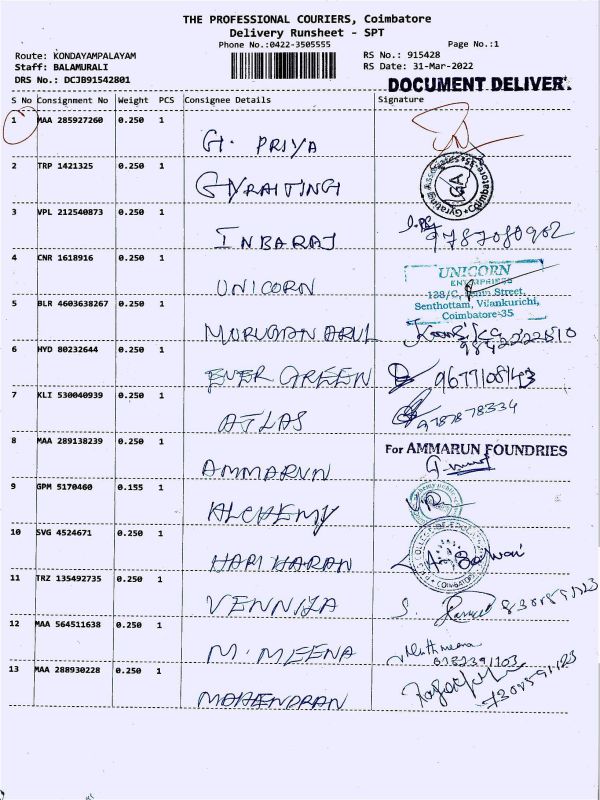 THE PROFESSIONAL COURIERS, Coimbatore
Delivery Runsheet - SPT
Phone No.:0422-3505555
Page No.:1
Route: KONDAYAMPALAYAM
RS No.: 915428
Staff: BALAMURALI
RS Date: 31-Mar-2022
DRS No.: DCJB91542801
DOCUMENT DELIVER.
S No Consignment No Weight PCS Consignee Details Signature
1 MAA 285927260 0.250 1
G. PRIYA
2 TRP 1421325 0.250 1
GYRAITING
Gyrating Associates Coimbatore-35
GA
3 VPL 212540873 0.250 1
INBARAJ
9787080902
4 CNR 1618916 0.250 1
UNICORN
UNICORN
ENTERPRISES
138/C, Street,
Senthottam, Vilankurichi,
Coimbatore-35
5 BLR 4603638267 0.250 1
MURUGAN ARUL
9842222810
6 HYD 80232644 0.250 1
EVER GREEN
9677108143
7 KLI 530040939 0.250 1
ATLAS
9787878334
8 MAA 289138239 0.250 1
AMMARUN
For AMMARUN FOUNDRIES
9 GPM 5170460 0.155 1
ALCHEMY
10 SVG 4524671 0.250 1
HARI HARAN
11 TRZ 135492735 0.250 1
VENNILA
12 MAA 564511638 0.250 1
M. MEENA
13 MAA 288930228 0.250 1
MAHENDRAN